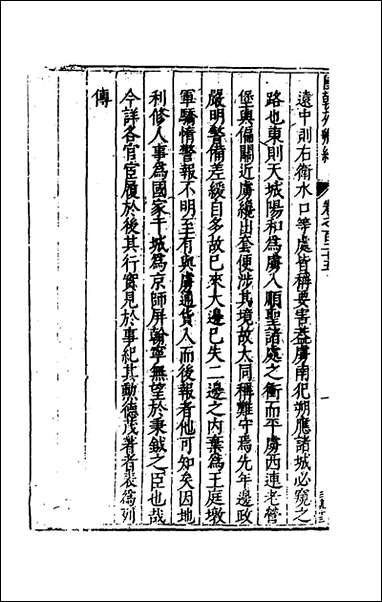 國朝列卿紀
卷之百二十五
一
遠中則右衛水口等處皆稱要害蓋虜南犯朔應諸城必窺之
路也東則天城陽和為虜入順聖諸處之衝而平虜西連老營
堡與偏關近虜纔出套便涉其境故大同稱難守焉先年邊政
嚴明警備差緩自多故已來大邊已失二邊之內棄為王庭墩
軍驕惰警報不明至有與虜通貨入而後報者他可知矣因地
利修人事為國家干城為京師屏翰寧無望於秉鉞之臣也哉
今詳各官宦履於後其行實見於事紀其勳德茂著者表為列
傳